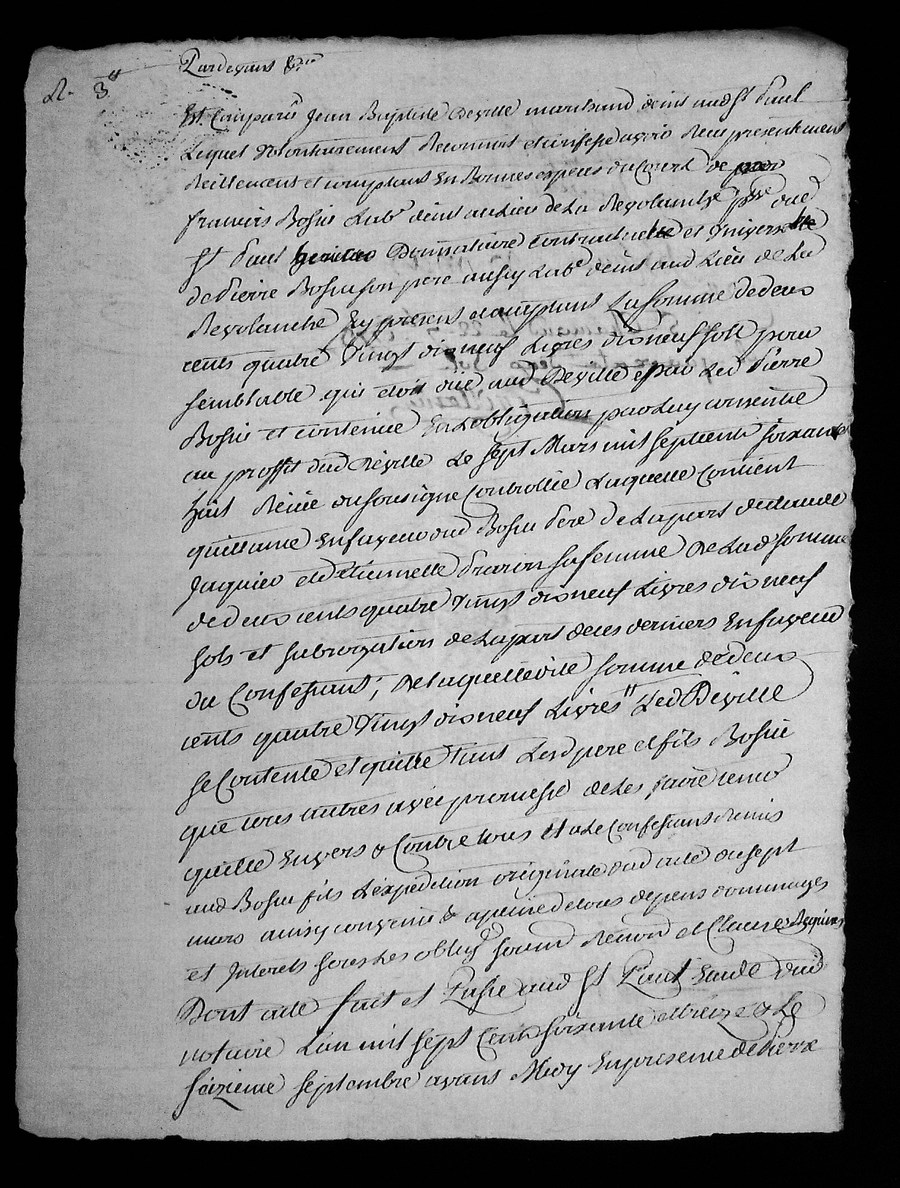 R. 3"
Pardevant &ra
Est Comparu Jean Baptiste Deville marchand dem.t aud St Paul
Lequel Volontairement Reconnoit et confesse avoir Receu presentement
Reellement et comptant En Bonnes especes du Court de
francois Bossu Lab.r dem.t au Lieu de La Revolanche p.sse dud
St Paul Donnataire contractuel et Universel
de Pierre Bossu son pere aussy Lab.r dem.t aud Lieu de La
Revolanche Icy present acceptant La somme de deux
cents quatre Vingt dix neuf Livres dix neuf sols pour
semblable qui etoit düe aud Deville par Led Pierre
Bossu et contenüe En L'obligation par Luy consentie
au proffit dud Deville Le sept Mars mil sept cent soixante
huit Recüe du soussigné Controllée Laquelle Contient
quittance En faveur dud Bossu Pere De La part de Claude
Jaquier et d'Etiennette sa femme De Lad somme
de deux cents quatre Vingt dix neuf Livres dix neuf
sols et subrogation de La part de ces derniers En faveur
du Confessant; De laquelle dite somme de deux
cents quatre Vingt dix neuf Livres " Led Deville
se Contente et quitte tant Lesd pere et fils Bossu
que tous autres avec promesse de Les faire tenir
quitte Envers & Contre tous et a Le Confessant Remis
aud Bossu fils L'expedition originale dud acte du sept
mars ainsy convenu & a peine de tous depens dommages
et Interets sous Les oblig.s soumi.. Renon.. et Clauses Requises
Dont acte fait et Passé aud St Paul Etude dud
notaire L'an mil sept Cent soixante et treize & Le
saizieme septembre avant Midy En presence de Pierre